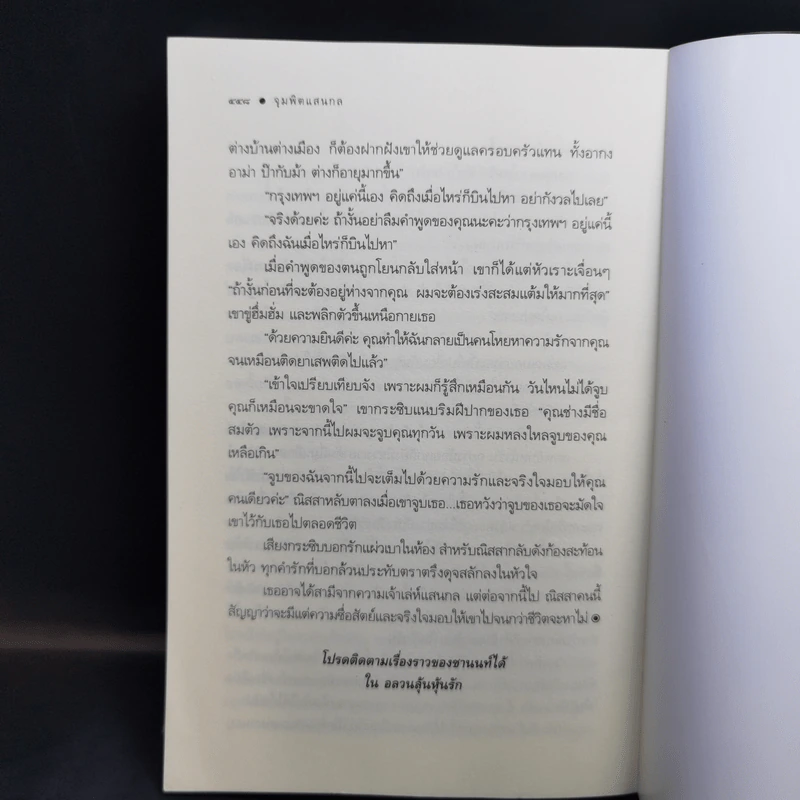 ๕๕๘ ● จุมพิตแสนกล
ต่างบ้านต่างเมือง ก็ต้องฝากฝังเขาให้ช่วยดูแลครอบครัวแทน ทั้งอากง
อาม่า ป๊ากับม้า ต่างก็อายุมากขึ้น”
“กรุงเทพฯ อยู่แค่นี้เอง คิดถึงเมื่อไหร่ก็บินไปหา อย่ากังวลไปเลย”
“จริงด้วยค่ะ ถ้างั้นอย่าลืมคำพูดของคุณนะคะว่ากรุงเทพฯ อยู่แค่นี้
เอง คิดถึงฉันเมื่อไหร่ก็บินไปหา”
เมื่อคำพูดของตนถูกโยนกลับใส่หน้า เขาก็ได้แต่หัวเราะเจื่อนๆ
“ถ้างั้นก่อนที่จะต้องอยู่ห่างจากคุณ ผมจะต้องเร่งสะสมแต้มให้มากที่สุด”
เขาขู่ฮึ่มฮั่ม และพลิกตัวขึ้นเหนือกายเธอ
“ด้วยความยินดีค่ะ คุณทำให้ฉันกลายเป็นคนโหยหาความรักจากคุณ
จนเหมือนติดยาเสพติดไปแล้ว”
“เข้าใจเปรียบเทียบจัง เพราะผมก็รู้สึกเหมือนกัน วันไหนไม่ได้จูบ
คุณก็เหมือนจะขาดใจ” เขากระซิบแนบริมฝีปากของเธอ “คุณช่างมีชื่อ
สมตัว เพราะจากนี้ไปผมจะจูบคุณทุกวัน เพราะผมหลงใหลจูบของคุณ
เหลือเกิน”
“จูบของฉันจากนี้ไปจะเต็มไปด้วยความรักและจริงใจมอบให้คุณ
คนเดียวค่ะ” ณิสสาหลับตาลงเมื่อเขาจูบเธอ...เธอหวังว่าจูบของเธอจะมัดใจ
เขาไว้กับเธอไปตลอดชีวิต
เสียงกระซิบบอกรักแผ่วเบาในห้อง สำหรับณิสสากลับดังก้องสะท้อน
ในหัว ทุกคำรักที่บอกล้วนประทับตราตรึงดุจสลักลงในหัวใจ
เธออาจได้สามีจากความเจ้าเล่ห์แสนกล แต่ต่อจากนี้ไป ณิสสาคนนี้
สัญญาว่าจะมีแต่ความซื่อสัตย์และจริงใจมอบให้เขาไปจนกว่าชีวิตจะหาไม่ ◉
โปรดติดตามเรื่องราวของชานนท์ได้
ใน อลวนลุ้นหุ้นรัก